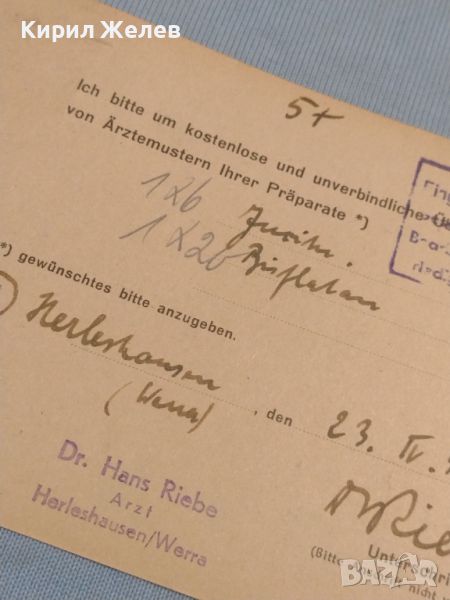 Кирил Желев
5x
Ich bitte um kostenlose und unverbindliche
von Ärztemustern Ihrer Präparate *)
1x6
1x20
*) gewünschtes bitte anzugeben.
Herleshausen
(Werra) , den 23. IV.
Dr. Hans Riebe
Arzt
Herleshausen/Werra
Unterschri
(Bitte nicht
bazar